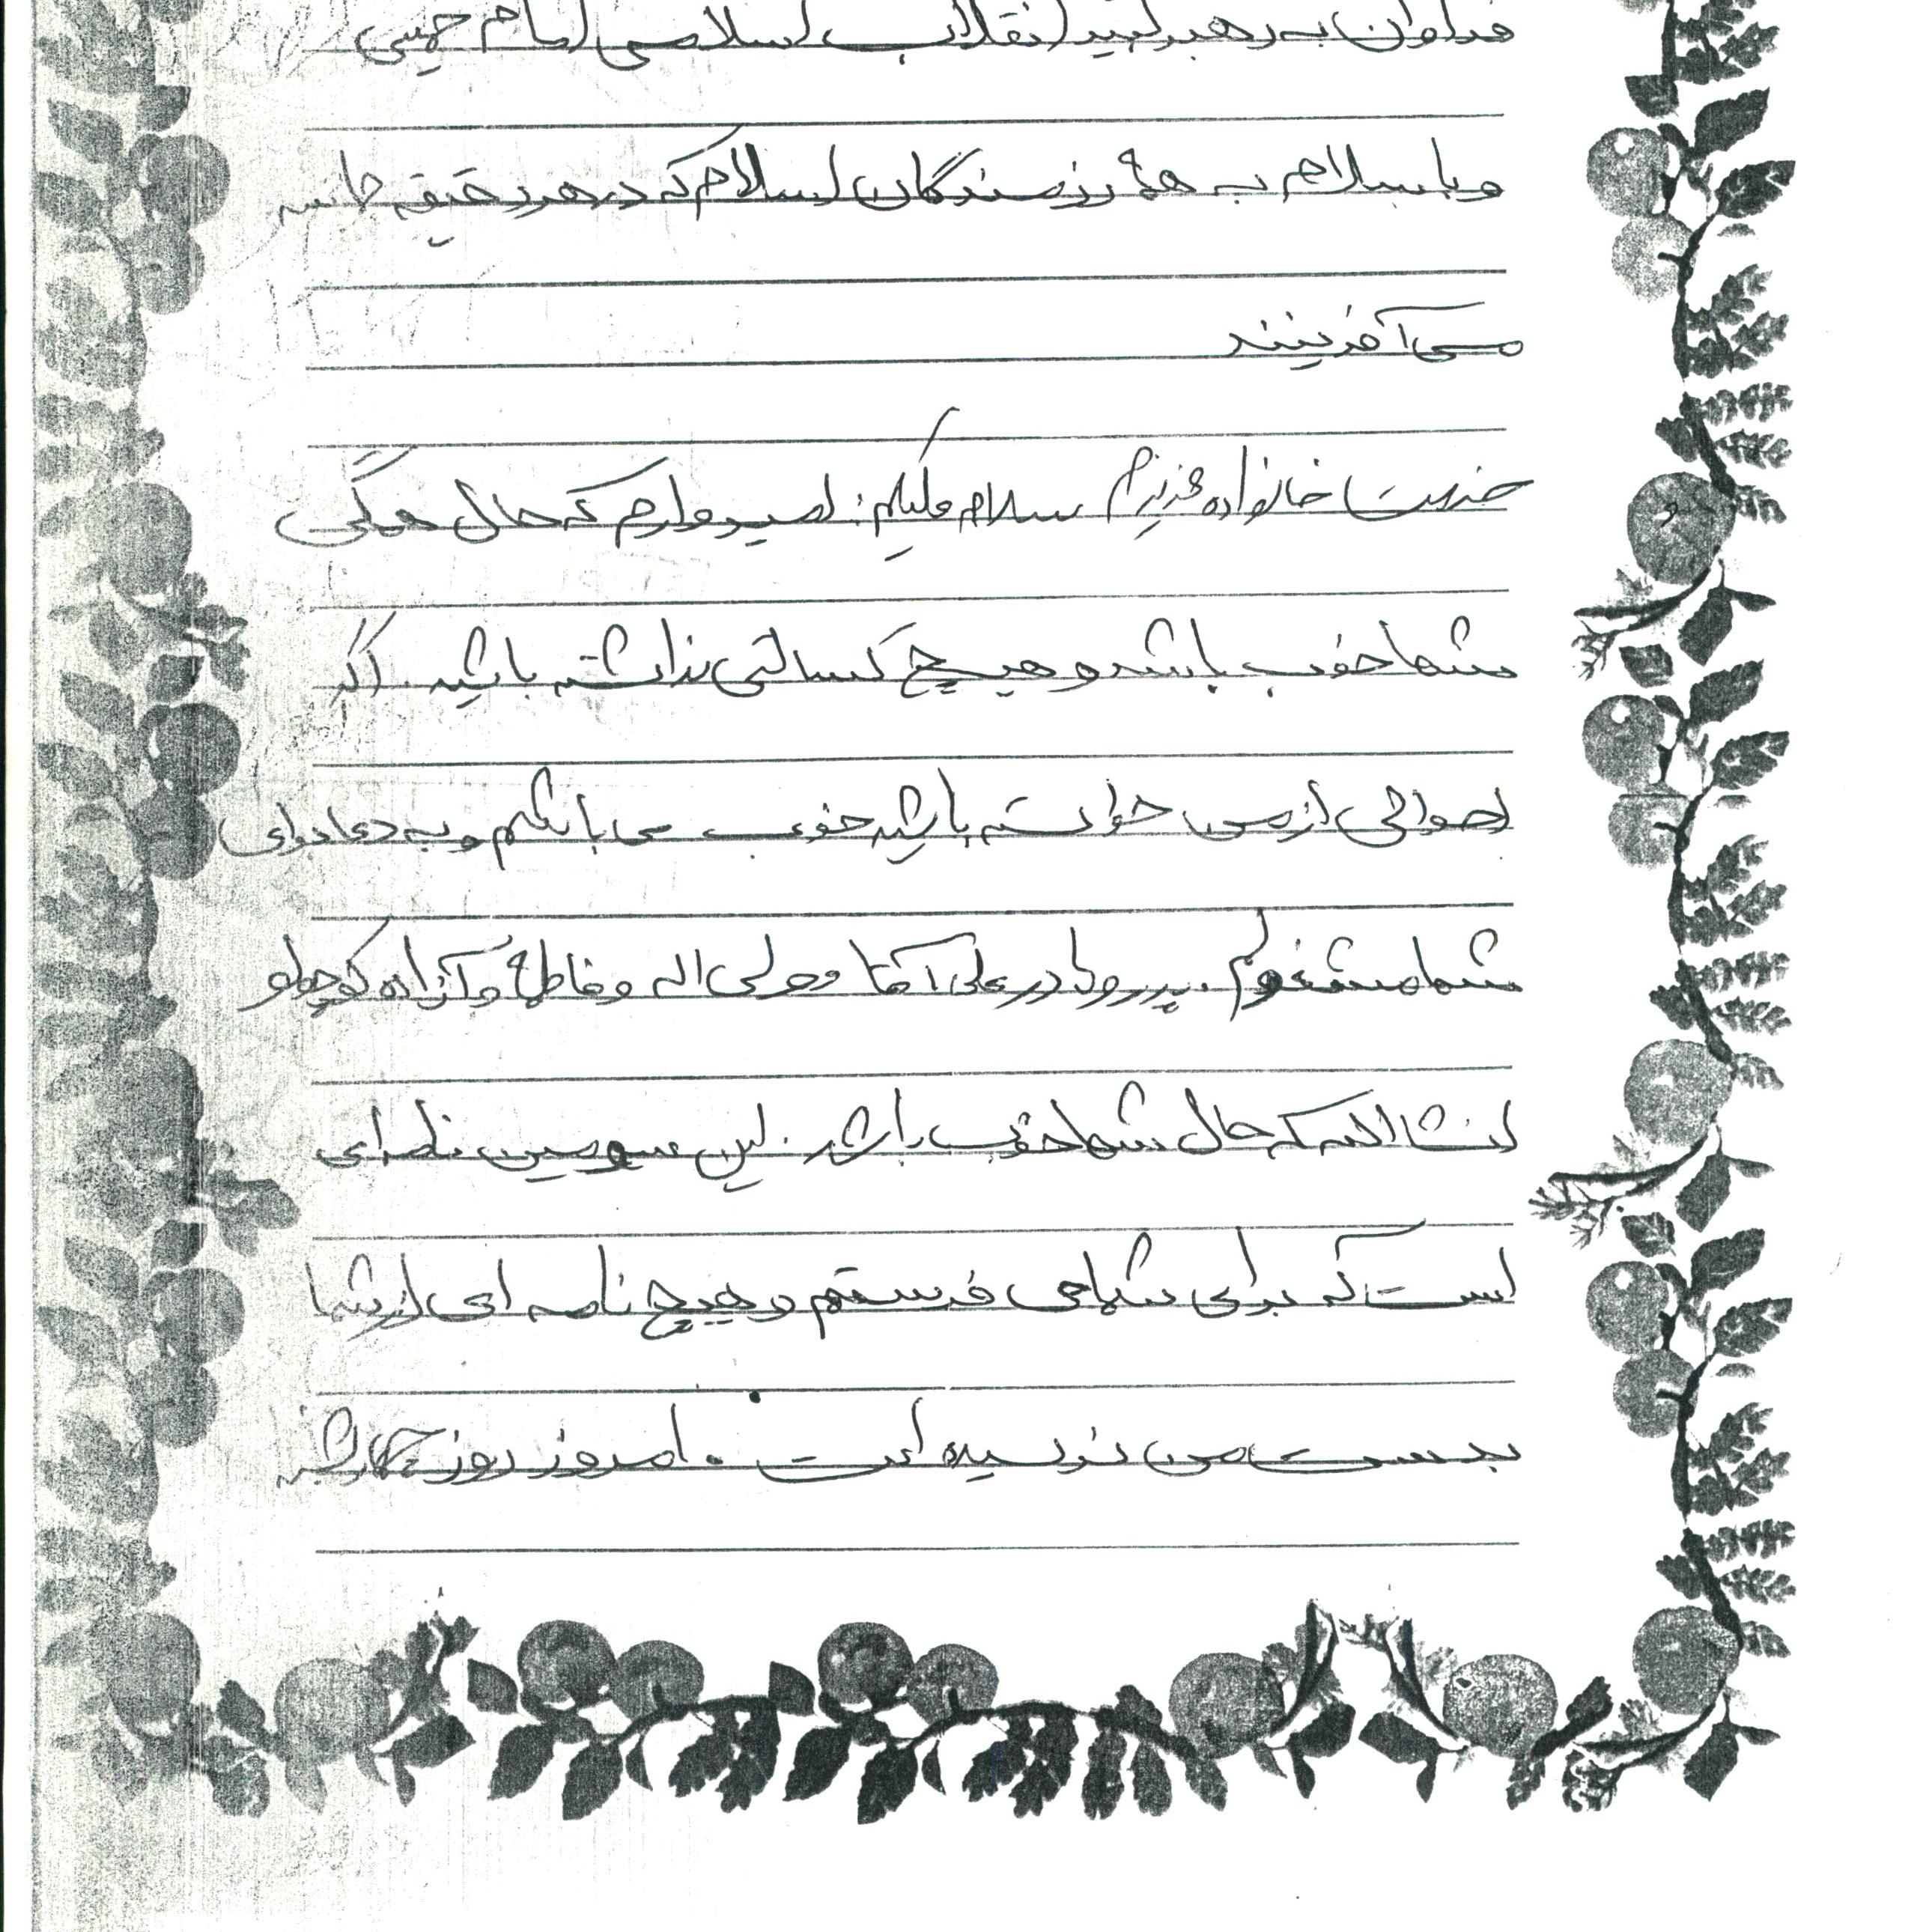 فراوان به رهبر کبیر انقلاب اسلامی امام خمینی
و با سلام به همهٔ رزمندگان اسلام که در هر دقیقه حماسه
می آفرینند
خدمت خانواده عزیزم سلام علیکم: امیدوارم که حال همگی
شما خوب باشد و هیچ کسالتی نداشته باشید. اگر
احوالی از من خواسته باشید خوب می باشم و به دعا برای
شما مشغولم. پدر و مادر علی آقا و ولی اله و فاطمهٔ و آزاده کوچولو
انشاالله که حال شما خوب باشد. این سومین نامه ای
است که برای شما می فرستم و هیچ نامه ای از شما
بدست من نرسیده است. امروز روز چهارشنبه